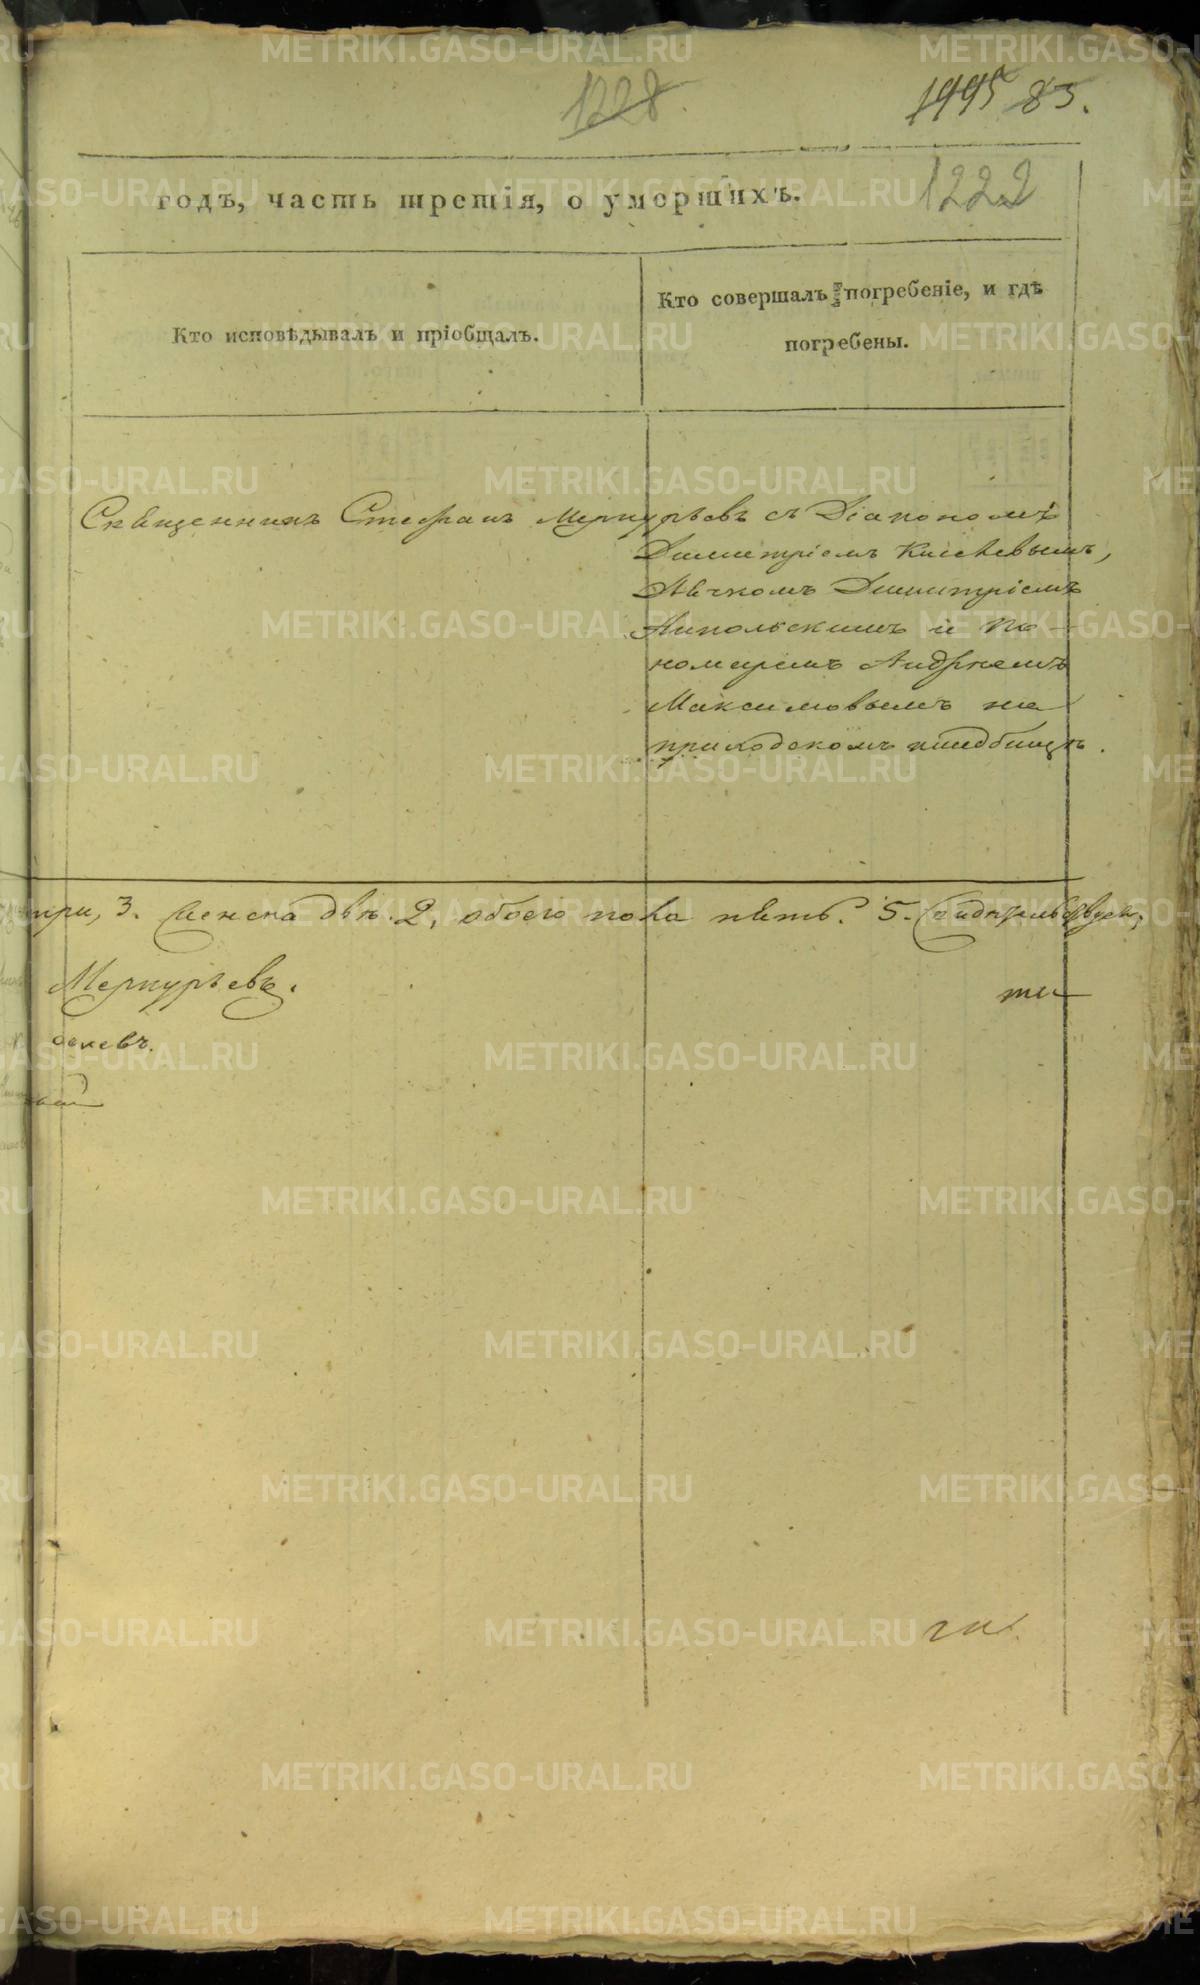 1228.
1995 83.
годъ, часть третія, о умершихъ.
1222
Кто исповѣдывалъ и пріобщалъ.
Кто совершалъ погребеніе, и гдѣ
погребены.
Священникъ Стефанъ Меркурьевъ съ Діакономъ
Димитріемъ Киселевымъ,
Дьячкомъ Димитріемъ
Анпольскимъ и По-
номаремъ Андреемъ
Максимовымъ на
приходскомъ кладбищѣ.
три, 3. Женска двѣ. 2, обоего пола пять. 5. Свидѣтельствуем,
Меркурьевъ.
METRIKI.GASO-URAL.RU